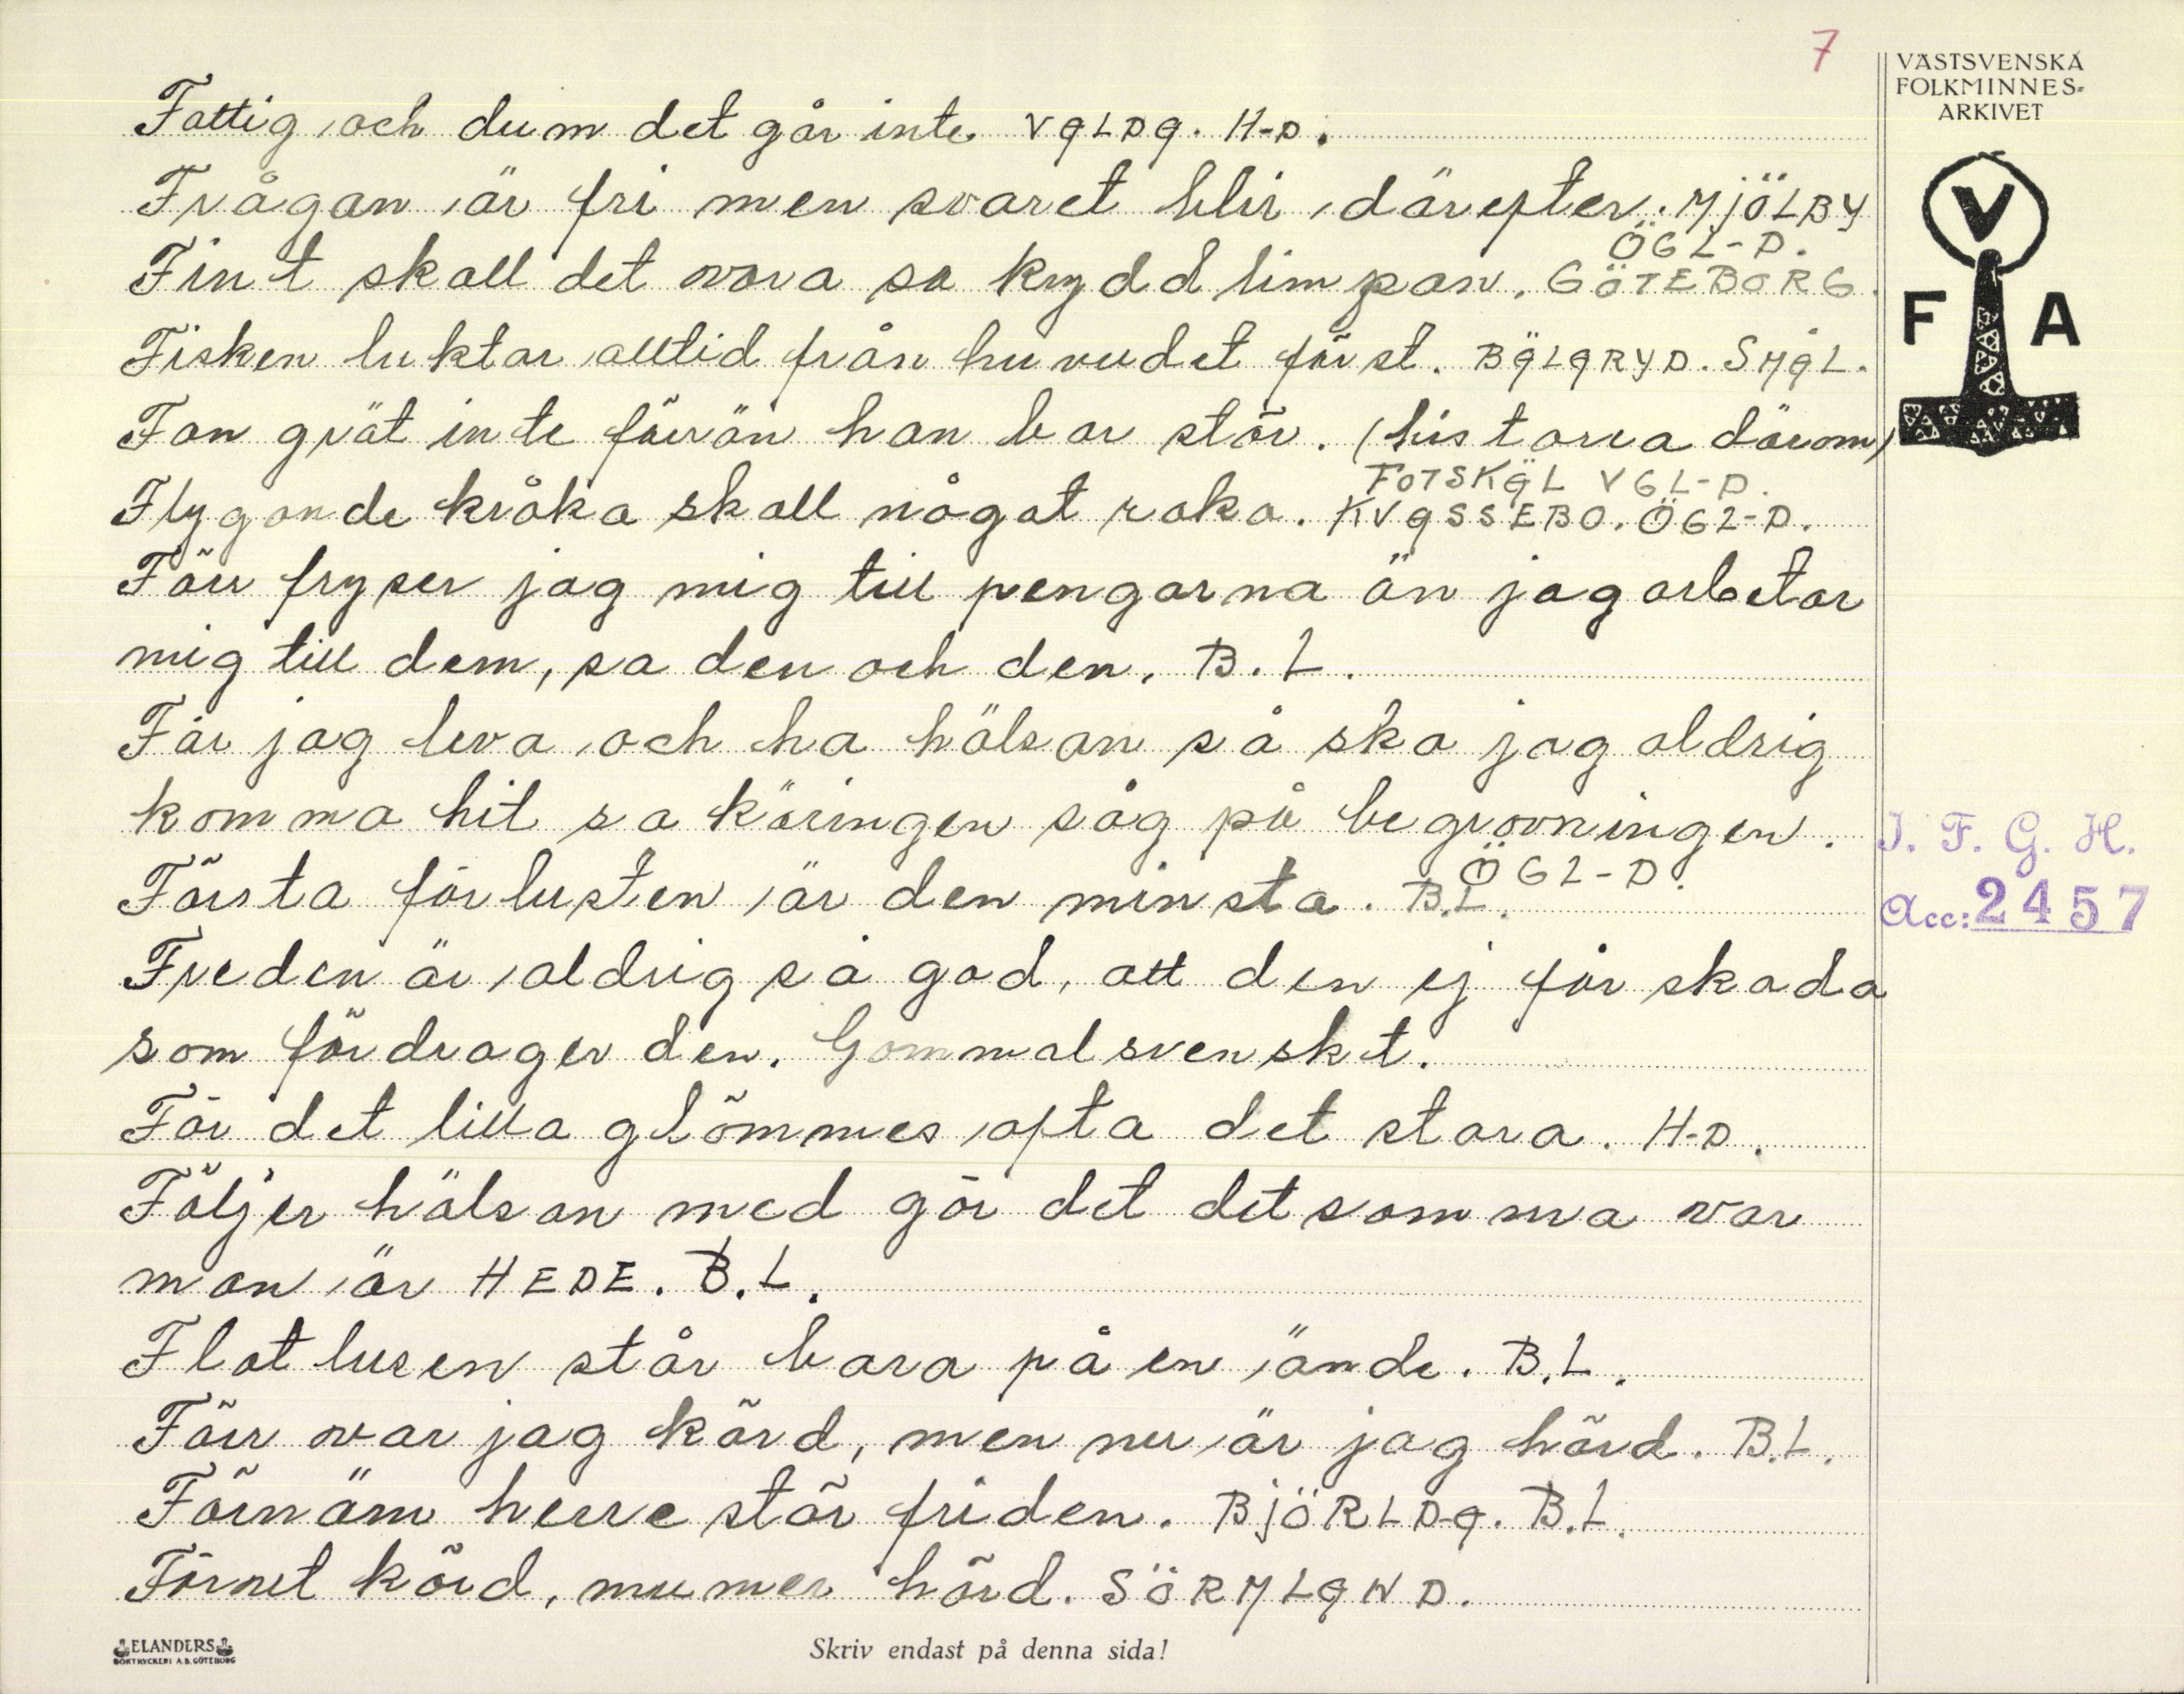 7
VÄSTSVENSKA
FOLKMINNES-
ARKIVET
V
F A
Fattig och dum det går inte VALDA. H-D.
Frågan är fri men svaret blir därefter. MJÖLBY
ÖGL-D.
Fint skall det vara sa kryddlimpan. GÖTEBORG.
Fisken luktar alltid från huvudet först. BÄLARYD. SMÅL.
Fan grät inte förrän han bar stör. (historia därom)
FOTSKÄL VGL-D.
Flygande kråka skall något raka. KVASSEBO. ÖGL-D.
Förr fryser jag mig till pengarna än jag arbetar
mig till dem, sa den och den. B.L.
Får jag leva och ha hälsan så ska jag aldrig
komma hit sa käringen såg på begravningen.
ÖGL-D.
Första förlusten är den minsta. B.L.
I. F. G. H.
Acc: 2457
Freden är aldrig så god, att den ej får skada
som fördrager den. Gammalsvenskt.
För det lilla glömmes ofta det stora. H-D.
Följer hälsan med gör det detsamma var
man är HEDE. B.L.
Flatlusen står bara på en ände. B.L.
Förr var jag körd, men nu är jag hörd. B.L.
Förnäm herre stör friden. BJÖRLDA. B.L.
Förnet körd, mumer hörd. SÖRMLAND.
ELANDERS
BOKTRYCKERI A.B. GÖTEBORG
Skriv endast på denna sida!